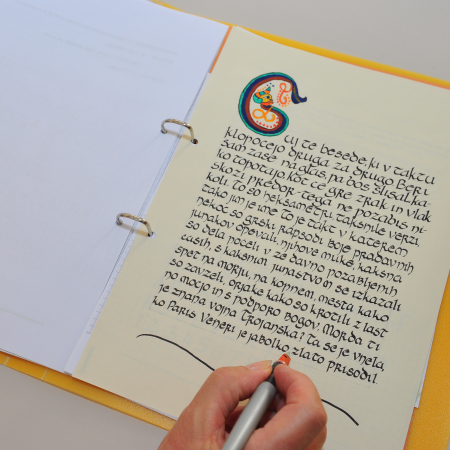 Čuj te besede ki v taktu
klopočejo druga za drugo Beri
sam zase naglas pa boš slišal ka-
ko topotajo kot če gre zrak in vlak
skozi predor-tega ne pozabiš ni-
koli. To so heksametri, takšnile verzi,
tako jim je ime to je takt v katerem
nekoč so grški rapsodi boje pradavnih
junakov opevali, njihove muke, kakšna
so dela počeli v že davno pozabljenih
časih, s kakšnim junaštvom se izkazali
spet na morju, na kopnem, mesta kako
so zavzeli, orjake kako so krotili z last
no močjo in s podporo bogov. Morda ti
je znana vojna Trojanska? Ta se je vnela,
ko Paris Veneri je jabolko zlato prisodil.